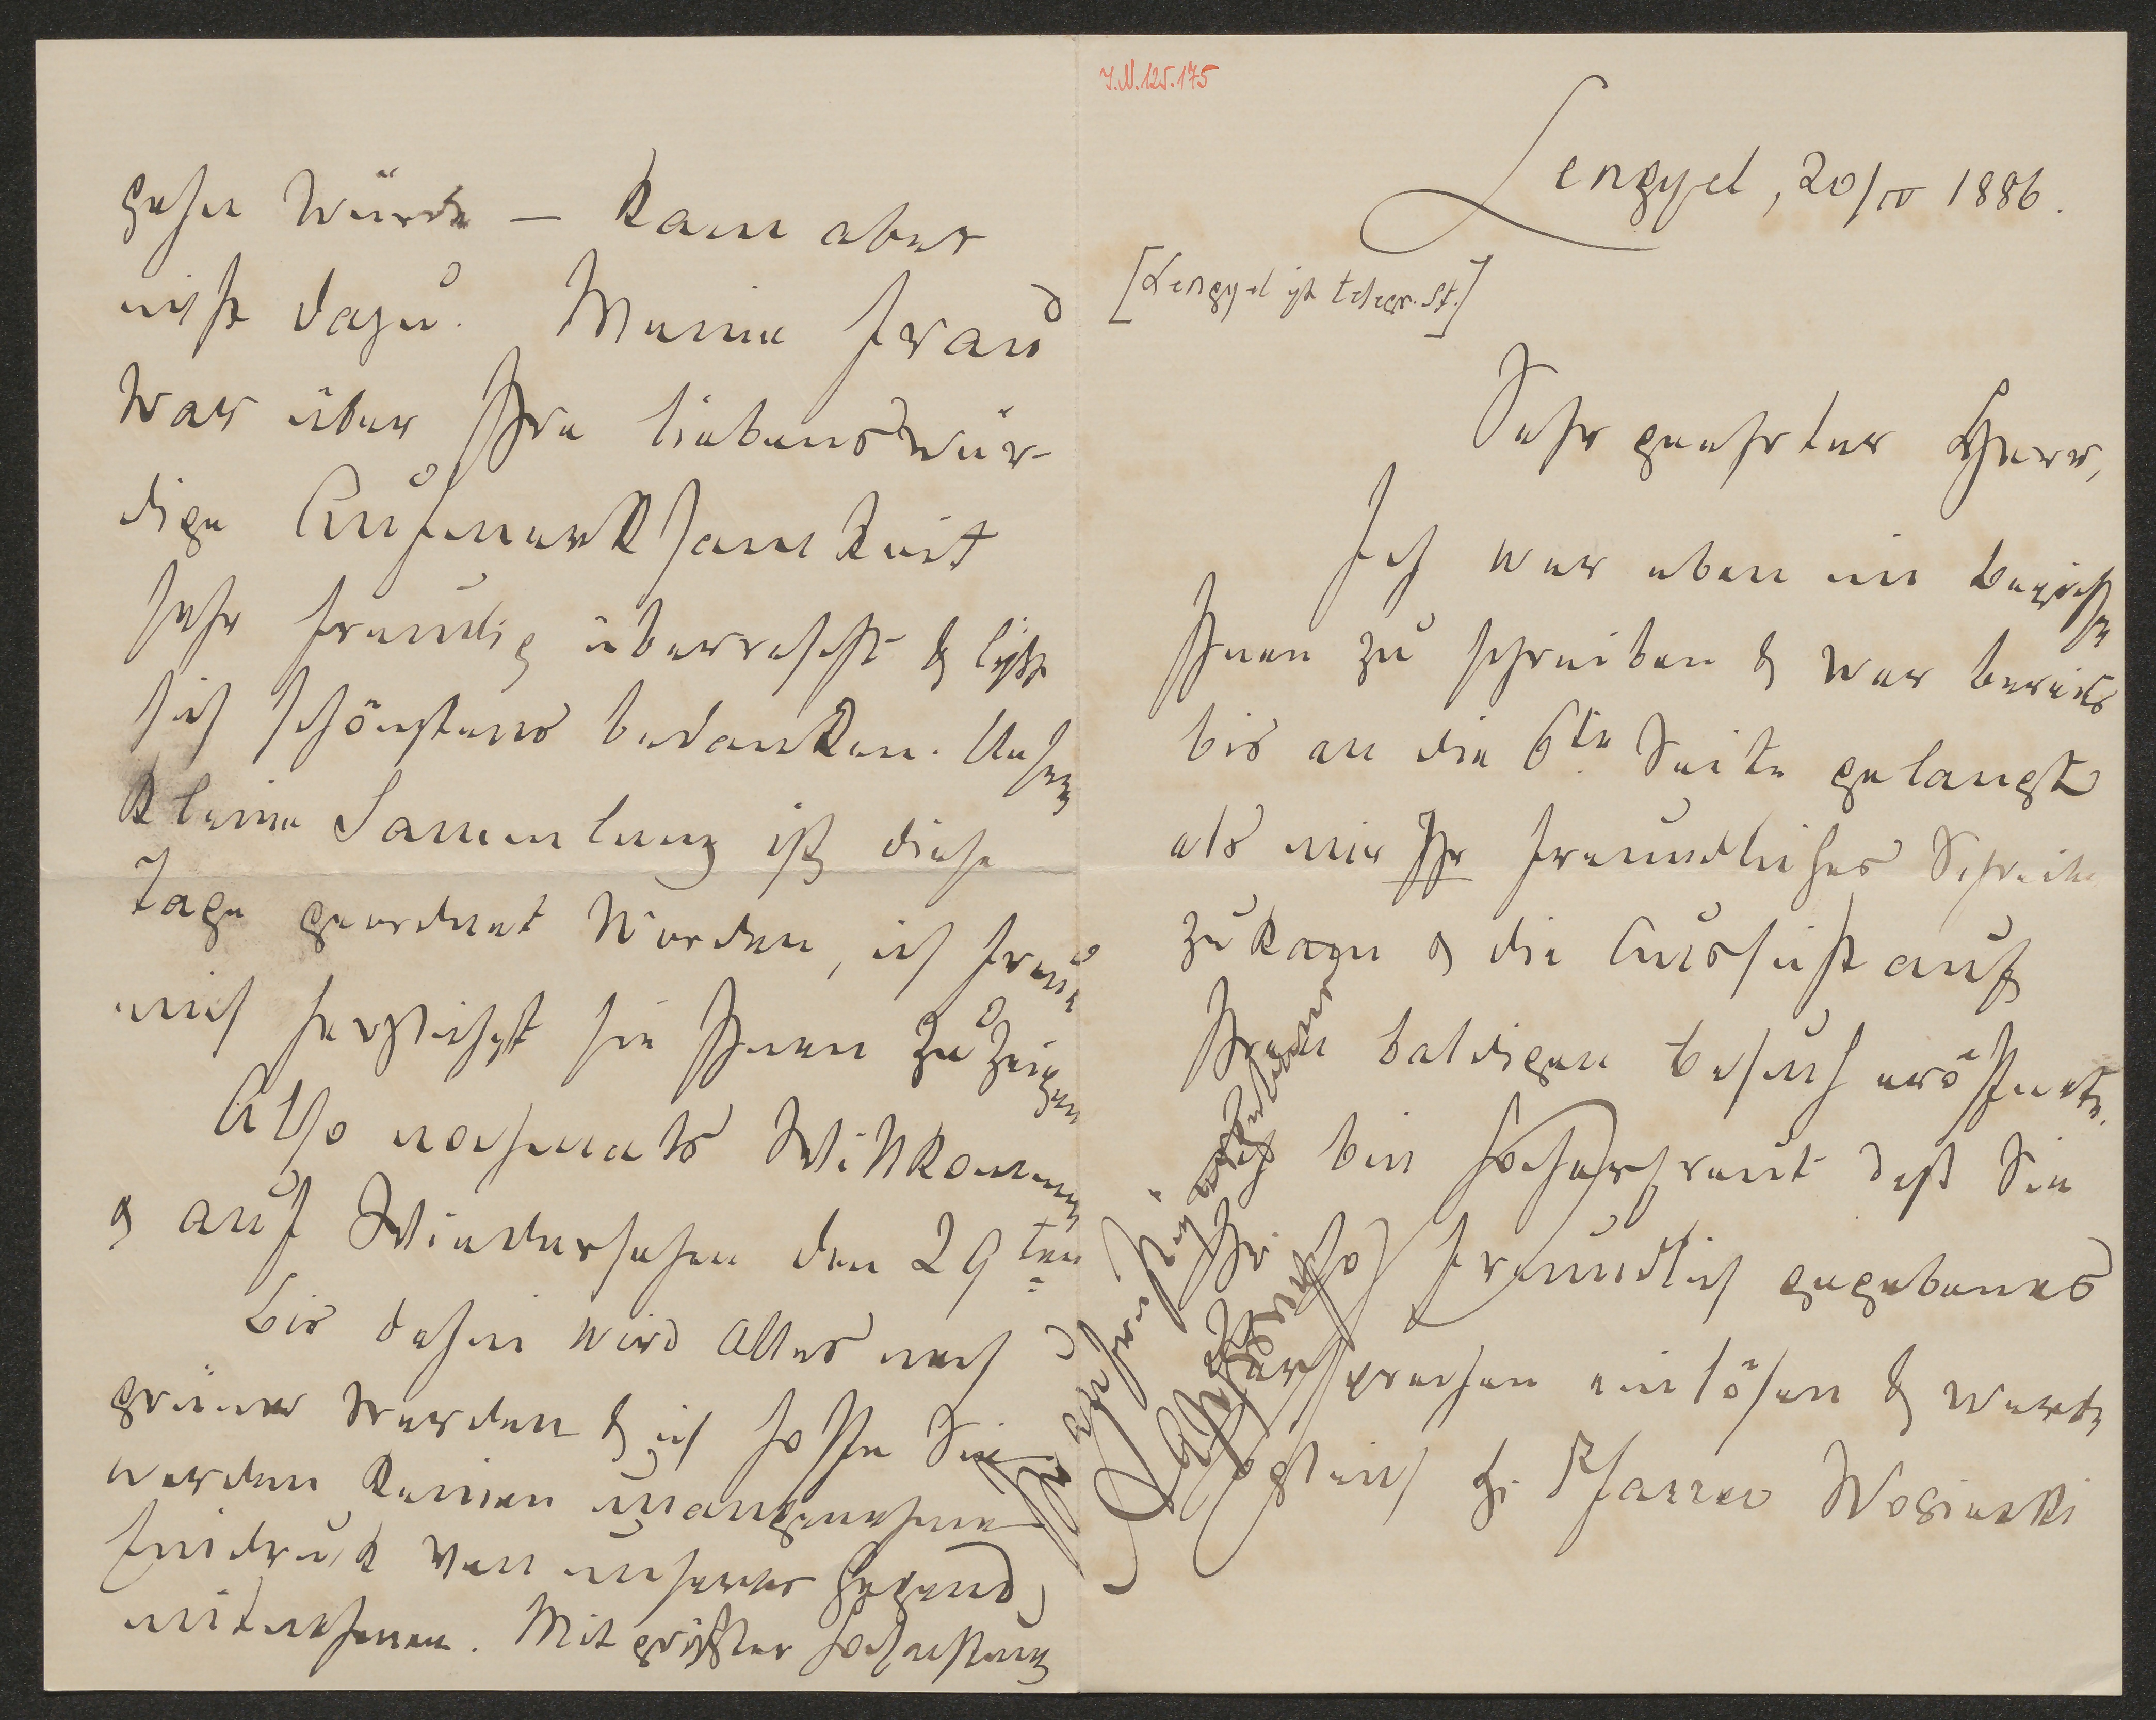 I.N.125.175
Lengyel, 20/IV 1886.
[Lengyel ist telegr. St.]
Sehr geehrter Herr,
Ich war eben im begriffe
Ihnen zu schreiben & war bereits
bis an die 6te Seite gelangt
als mir Ihr freundliches Schreiben
zukam & die Aussicht auf
Ihren baldigen besuch eröffnete.
Ich bin hocherfreut daß Sie
Ihr so freundlich gegebenes
Versprechen einlösen & werde
gleich H. Pfarrer Wosinski
gehen würde – kam aber
nicht dazu. Meine Frau
war über Ihre liebenswür-
dige Aufmerksamkeit
sehr freudig überrascht & läßt
sich schönstens bedanken. Unsere
kleine Sammlung ist diese
Tage geordnet worden, ich freue
mich herzlichst sie Ihnen zu zeigen
Also nochmals Willkommen
& auf Wiedersehen den 29ten
bis dahin wird Alles noch
grüner werden & ich hoffe Sie
werden keinen unangenehmen
Eindruck von unserer Gegend
mitnehmen. Mit größter Hochachtung
Ihr